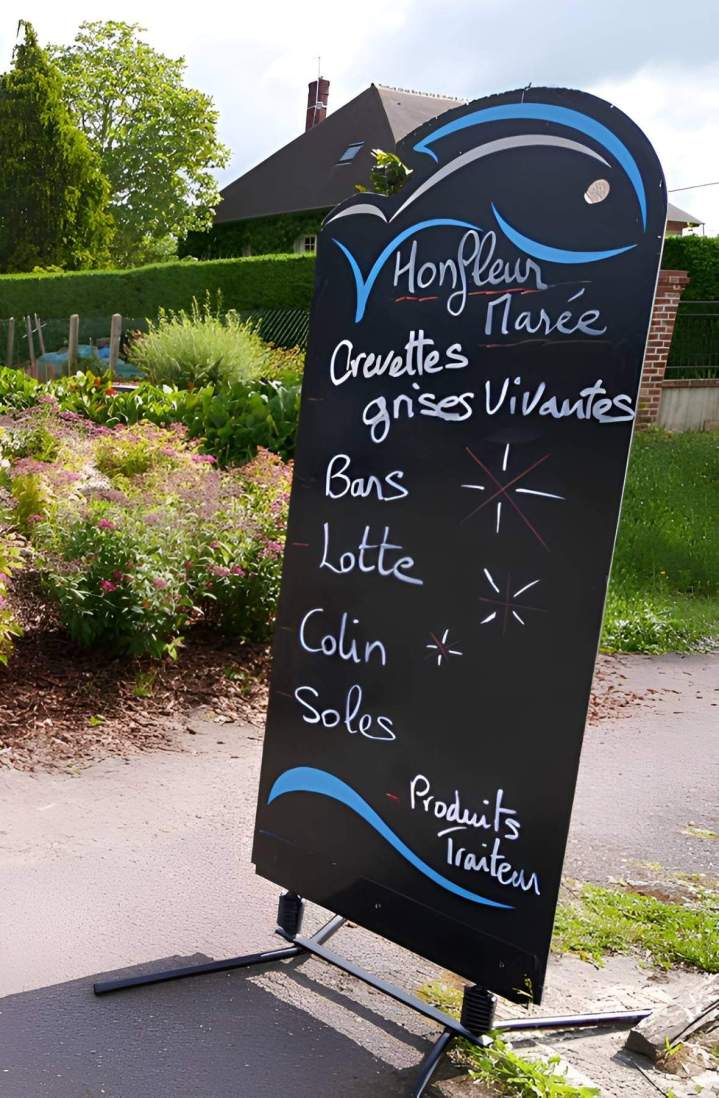 Honfleur
Marée
Crevettes
grises Vivantes
Bars
Lotte
Colin
Soles
Produits
Traiteur